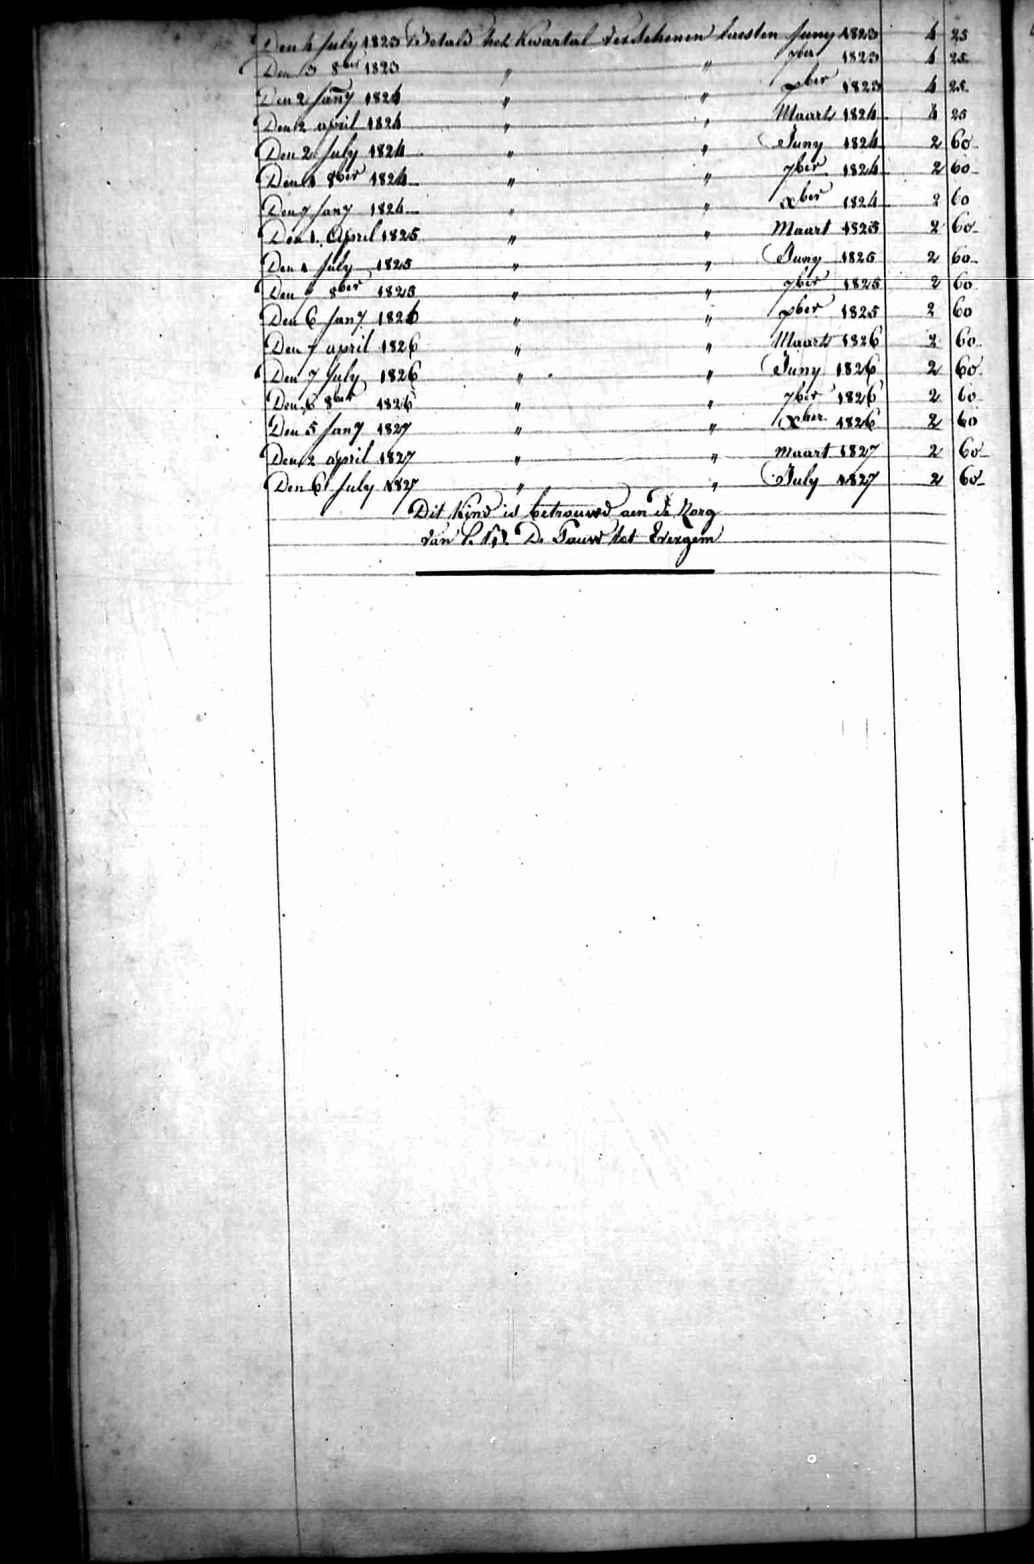 Den 4 July 1823 Betald het Kwartal verschenen laesten Juny 1823 4 25
Den 3 8ber 1823 " " 7ber 1823 4 25
Den 2 Jany 1824 " " xber 1823 4 25
Den 2 april 1824 " " Maart 1824 4 25
Den 2 July 1824 " " Juny 1824 2 60
Den 1 8ber 1824 " " 7ber 1824 2 60
Den 7 Jany 1824 " " xber 1824 2 60
Den 1 April 1825 " " Maart 1825 2 60
Den 1 July 1825 " " Juny 1825 2 60
Den 7 8ber 1825 " " 7ber 1825 2 60
Den 6 Jany 1826 " " xber 1825 2 60
Den 7 april 1826 " " Maart 1826 2 60
Den 7 July 1826 " " Juny 1826 2 60
Den 6 8ber 1826 " " 7ber 1826 2 60
Den 5 Jany 1827 " " xber 1826 2 60
Den 2 april 1827 " " maart 1827 2 60
Den 6 July 1827 " " July 1827 2 60
Dit Kind is betrouwd aen de Zorg
van De Pauw tot Evergem